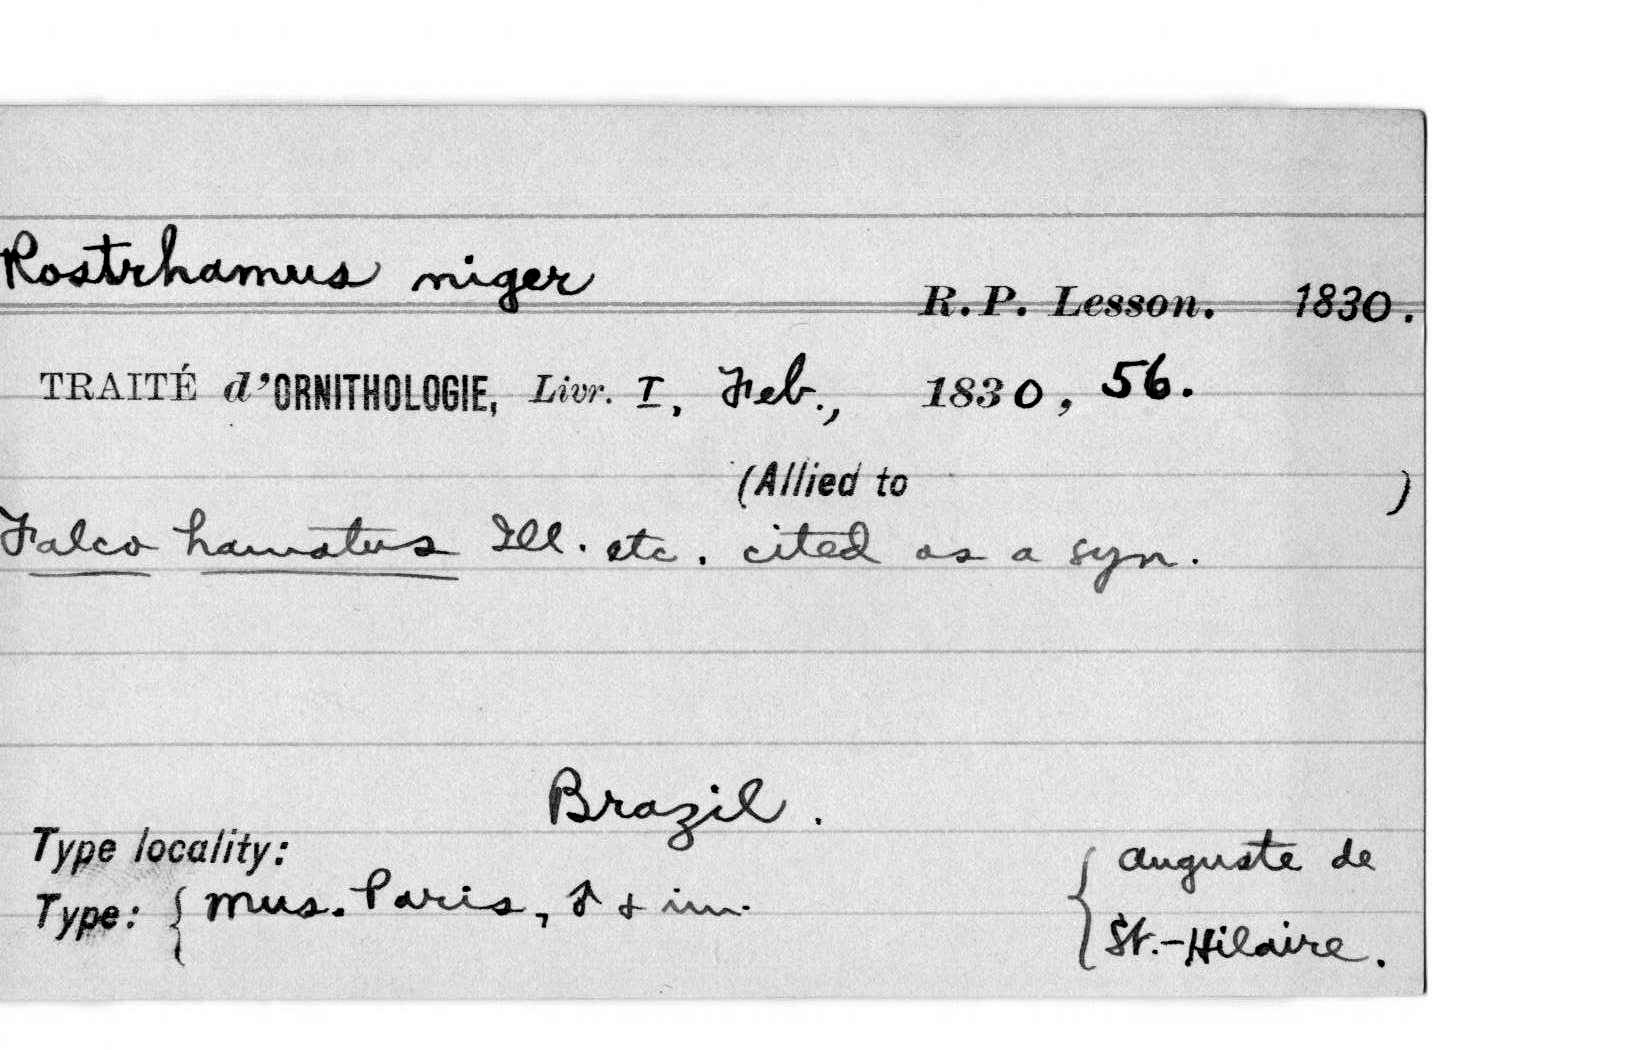 Rostrhamus niger
R.P. Lesson. 1830.
TRAITÉ d'ORNITHOLOGIE, Livr. I, Feb., 1830, 56.
(Allied to )
Falco hamatus Ill. etc. cited as a syn.
Brazil.
Type locality:
Type: { Mus. Paris, ♂ & im. { Auguste de
St.-Hilaire.